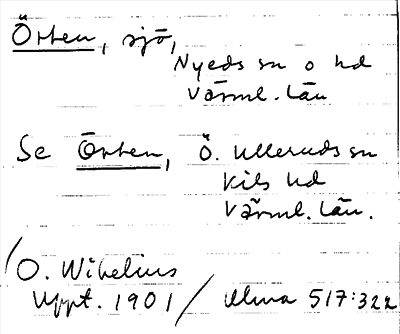 Örten, sjö,
Nyeds sn o hd
Värml. län
Se Örten, Ö. Ulleruds sn
Kils hd
Värml. län.
/O. Wibelius
Uppt. 1901 / Ulma 517:322